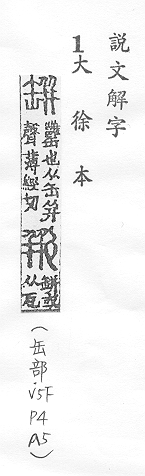 説文解字
1大徐本
缾罋也从缶并
聲薄經切
缾或
从瓦
(缶部
V5F
P4
A5)